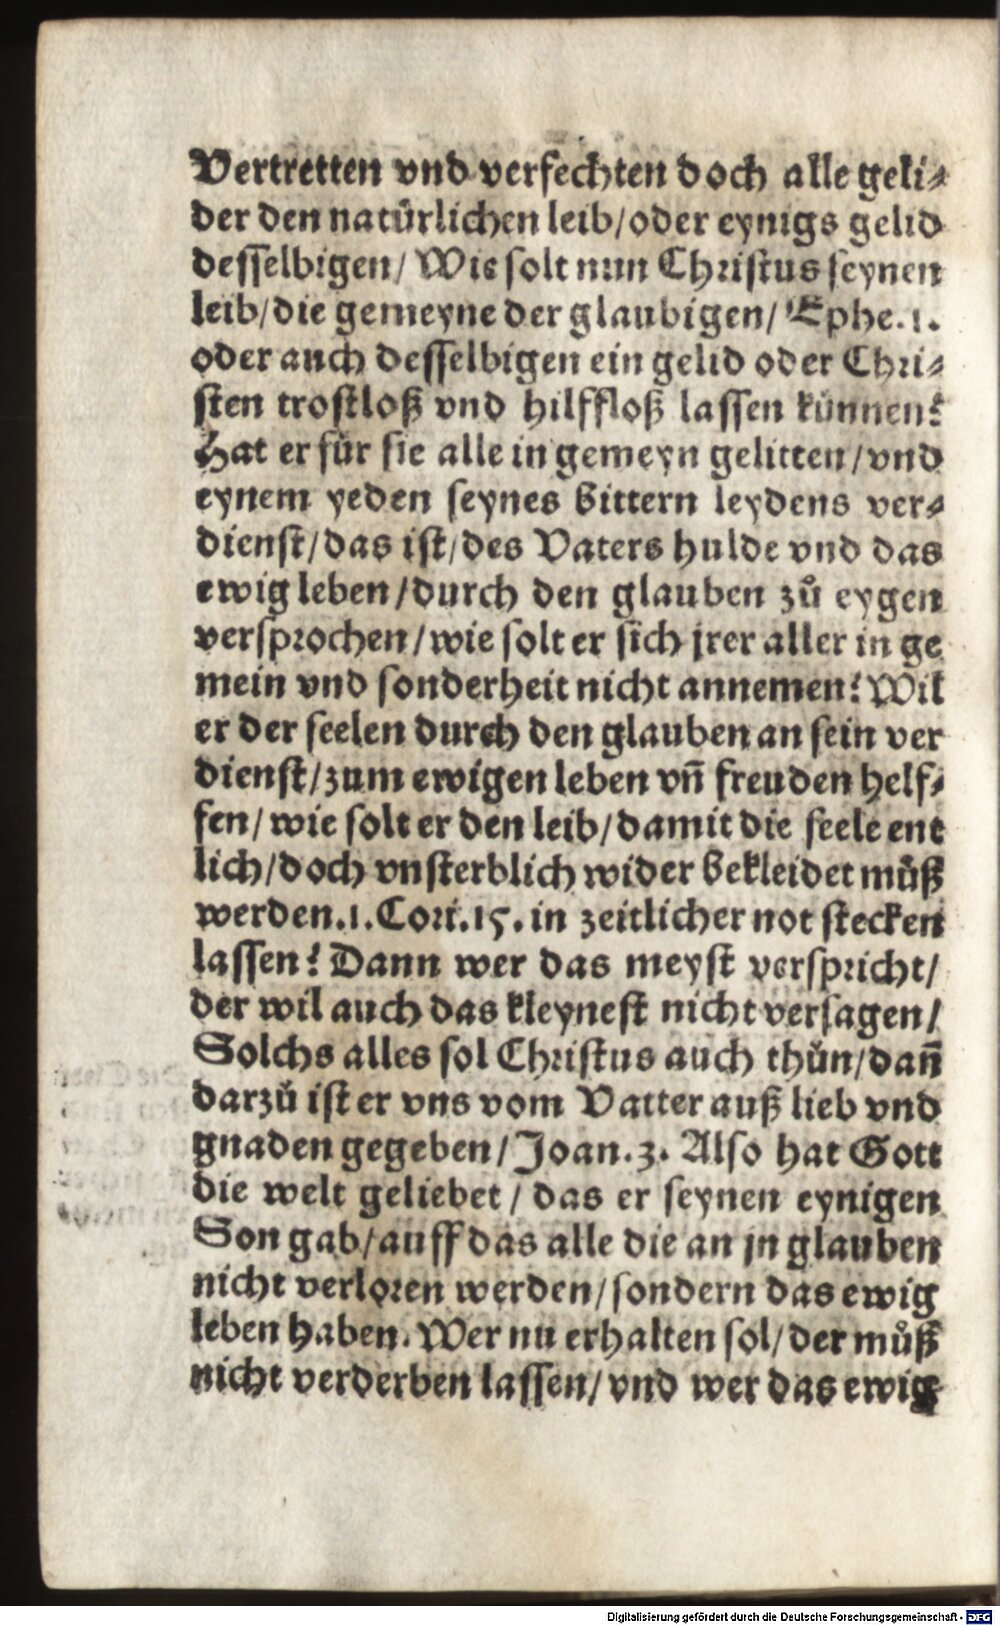 Vertretten vnd verfechten doch alle geli-
der den natürlichen leib/oder eynigs gelid
desselbigen/ Wie solt nun Christus seynen
leib/die gemeyne der glaubigen/ Ephe.1.
oder auch desselbigen ein gelid oder Chri-
sten trostloß vnd hilffloß lassen künnen?
Hat er für sie alle in gemeyn gelitten/vnd
eynem yeden seynes bittern leydens ver-
dienst/das ist/des Vaters hulde vnd das
ewig leben/durch den glauben zů eygen
versprochen/wie solt er sich jrer aller in ge
mein vnd sonderheit nicht annemen? Wil
er der seelen durch den glauben an sein ver
dienst/zum ewigen leben vñ freuden helf-
fen/wie solt er den leib/damit die seele ent
lich/doch vnsterblich wider bekleidet můß
werden.1.Cori.15.in zeitlicher not stecken
lassen? Dann wer das meyst verspricht/
der wil auch das kleynest nicht versagen/
Solchs alles sol Christus auch thůn/dañ
darzů ist er vns vom Vatter auß lieb vnd
gnaden gegeben/Joan.3. Also hat Gott
die welt geliebet/ das er seynen eynigen
Son gab/auff das alle die an jn glauben
nicht verloren werden/sondern das ewig
leben haben. Wer nu erhalten sol/der můß
nicht verderben lassen/vnd wer das ewig
Digitalisierung gefördert durch die Deutsche Forschungsgemeinschaft - DFG